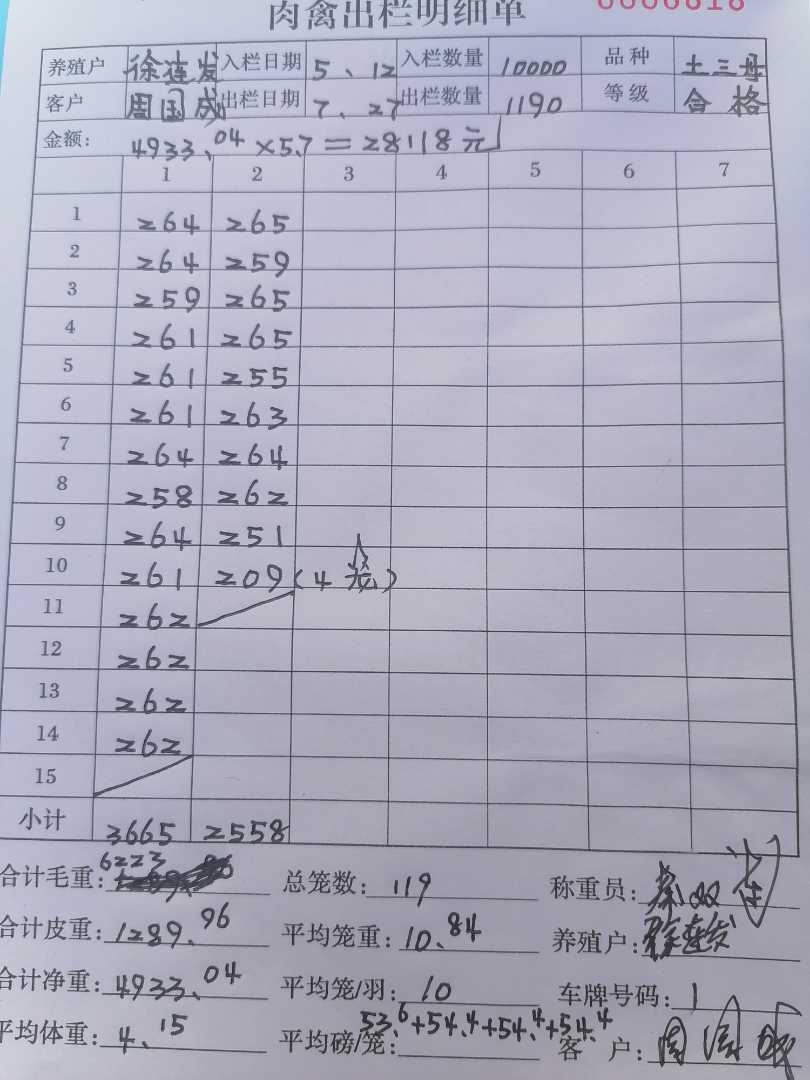 肉禽出栏明细单
养殖户 徐莲发 入栏日期 5、12 入栏数量 10000 品种 土三母
客户 周国成 出栏日期 7、27 出栏数量 1190 等级 合格
金额: 4933、04×5.7=28118元
1 2 3 4 5 6 7
1 264 265
2 264 259
3 259 265
4 261 265
5 261 255
6 261 263
7 264 264
8 258 262
9 264 251
10 261 209(4笼)
11 262
12 262
13 262
14 262
15
小计 3665 2558
合计毛重: 6223 总笼数: 119 称重员:
合计皮重: 1289.96 平均笼重: 10.84 养殖户: 徐莲发
合计净重: 4933、04 平均笼/羽: 10 车牌号码: 1
平均体重: 4、15 平均磅/笼: 53.6+54.4+54.4+54.4 客户: 周国成